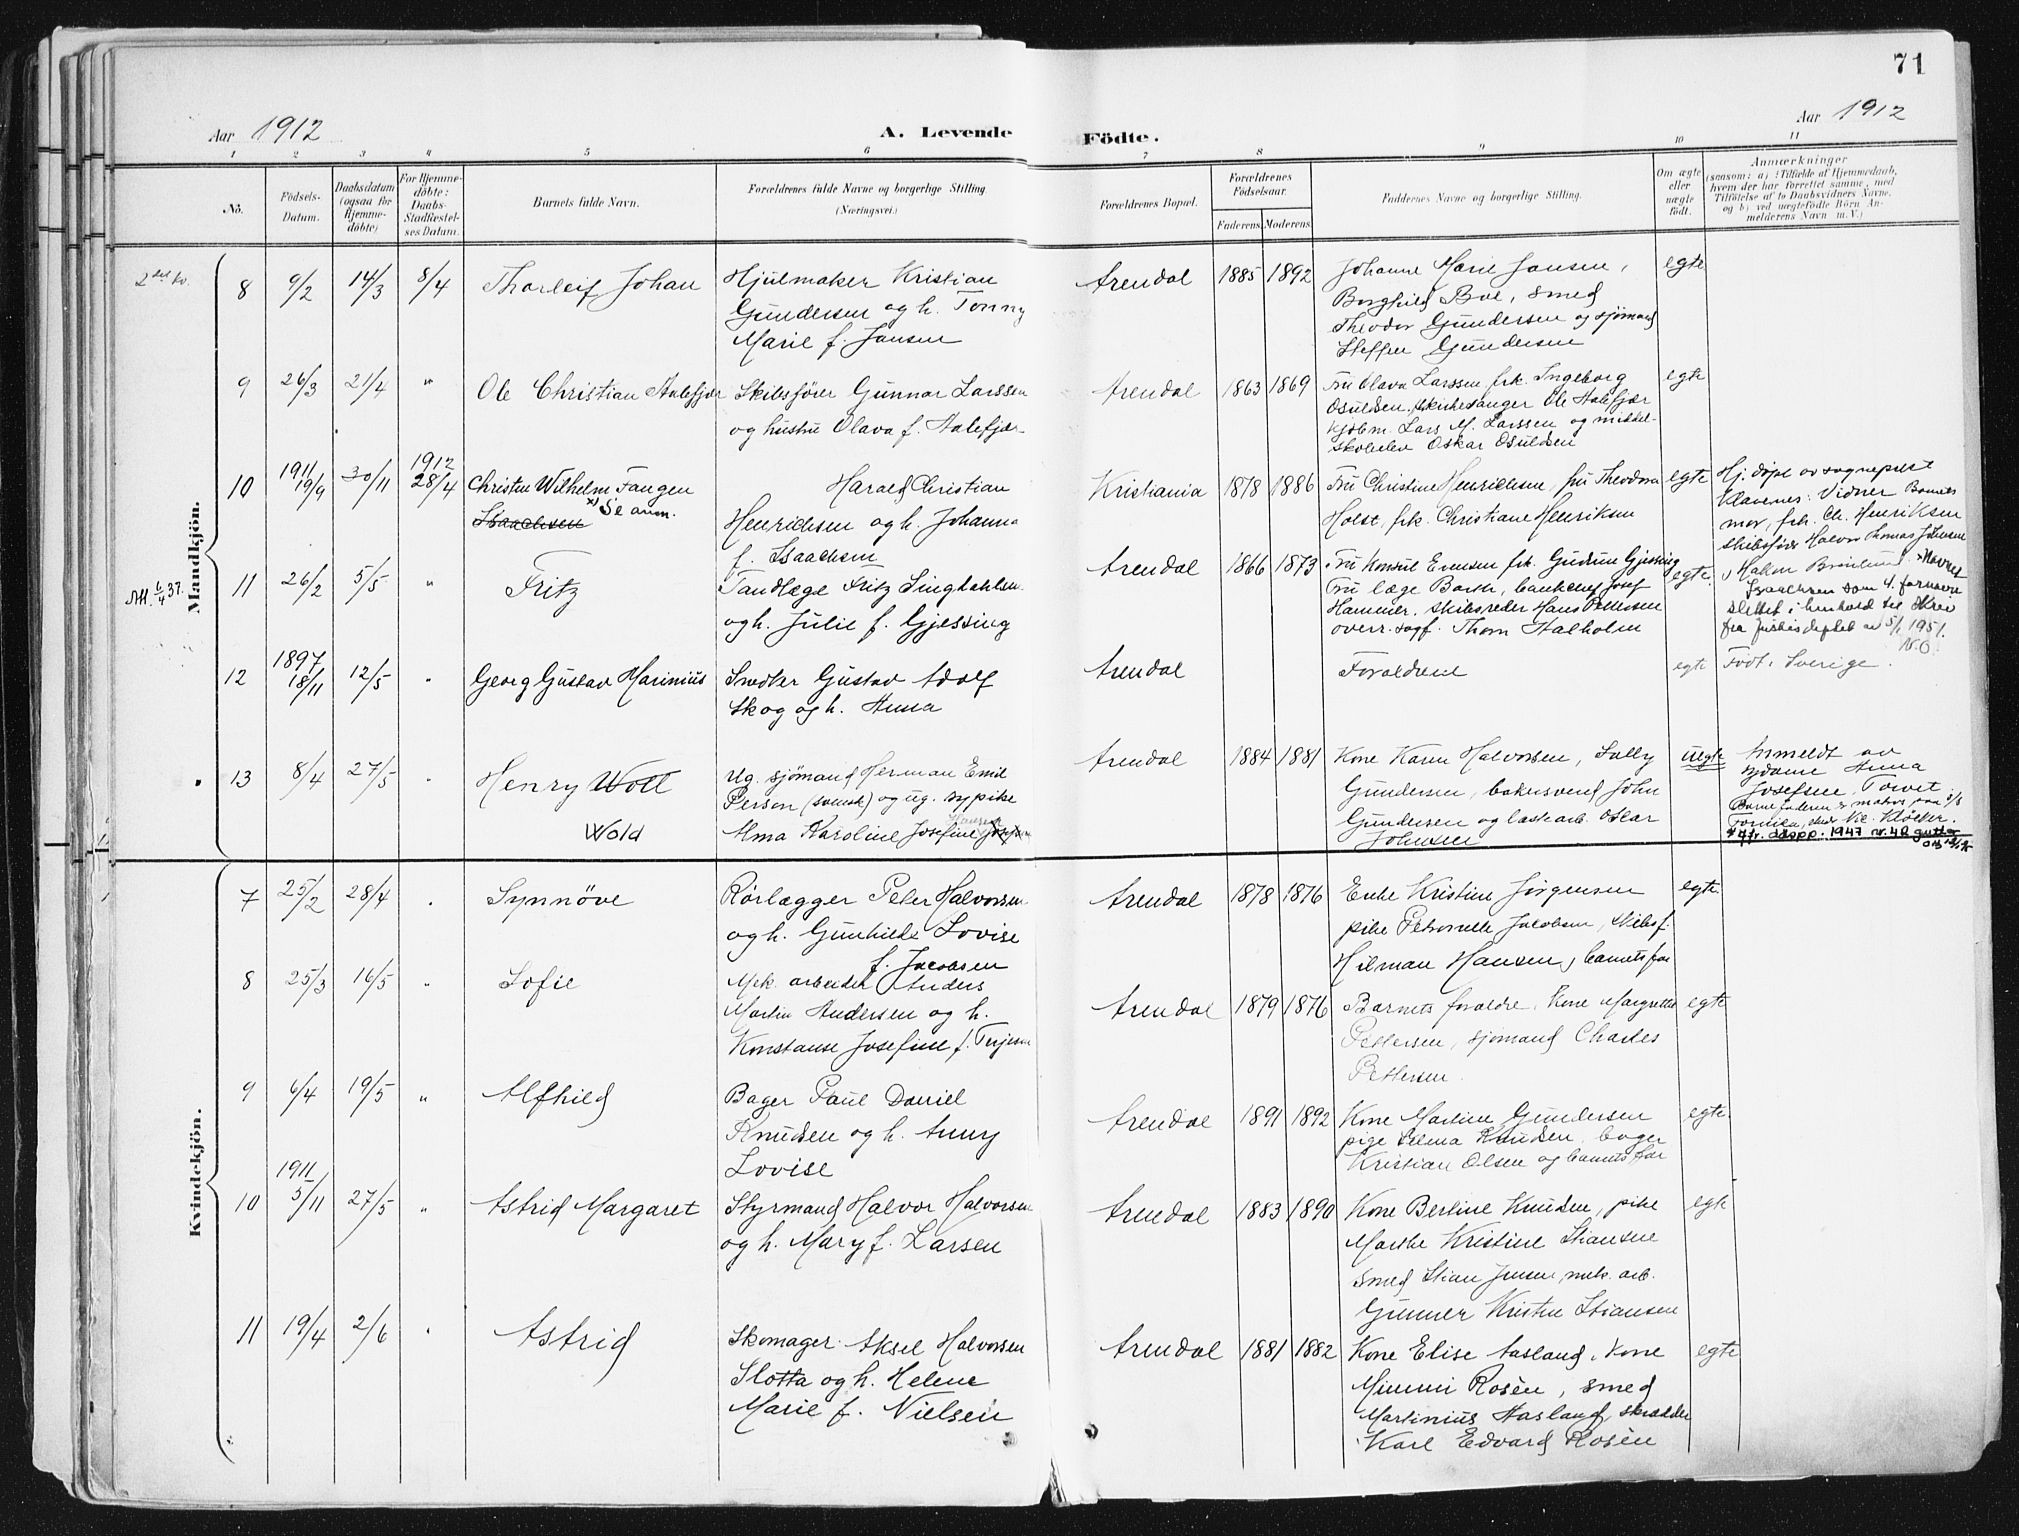 71
Aar 1912
A. Levende
Födte.
Aar 1912
1 2 3 4 5 6 7 8 9 10 11
Nö.
Födsels-
Datum.
Daabsdatum
(ogsaa for
Hjemme-
döbte)
For Hjemme-
döbte:
Daabs-
Stadfæstel-
ses Datum.
Barnets fulde Navn.
Forældrenes fulde Navne og borgerlige Stilling
(Næringsvei.)
Forældrenes Bopæl.
Forældrenes
Födselsaar.
Faderens Moderens
Faddernes Navne og borgerlige Stilling.
Om ægte
eller
uægte
födt.
Anmærkninger
(saasom: a) i Tilfælde af Hjemmedaab,
hvem der har forrettet samme, med
Tilföielse af to Daabsvidners Navne,
og b) ved uægtefödte Börn An-
melderens Navn m. V.)
Mandkjön.
8 9/2 14/3 8/4 Thorleif Johan
Hjulmaker Kristian
Gundersen og h. Tonny
Marie f. Jansen
Arendal 1885 1892
Johanne Marie Jansen,
Borghild Boe, smed
Theodor Gundersen og sjömand
Steffen Gundersen
egte
9 26/3 21/4 " Ole Christian Halefjær
Skibsförer Gunnar Larssen
og hustru Olava f. Halefjær
Arendal 1863 1869
Fru Olava Larssen frk. Ingeborg
Osuldsen, kirkesanger Ole Halefjær
kjöbm. Lars M. Larssen og middel-
skoleelev Oskar Osuldsen
egte
10 1911 19/9 30/11 1912 28/4
Christen Wilhelm Fangen
Isaachsen x) Se anm.
Harald Christian
Henrichsen og h. Johanna
f. Isaachsen
Kristiania 1878 1886
Fru Christine Henrichsen, fru Theodora
Holst, frk. Christiane Henriksen
egte
Hj. döpt av sogneprest
Klavenes: Vidner Barnets
mor, frk. Ch. Henriksen
skibsförer Halvor Thomas Johnsen
11 26/2 5/5 " Fritz
Tandlæge Fritz Singdahlsen
og h. Julie f. Gjessing
Arendal 1866 1873
Fru Konsul Evensen frk. Gudrun Gjessing
Fru læge Barth, bankchef Josef
Hammer, skibsreder Hans Pettersen
overr. sagf. Thom Stalholm
egte.
Isaachsen som 4. fornavn
slettet i henhold til skriv
fra Justisdeptet av 5/1 1951.
12 1897 18/11 12/5 " Georg Gustav Marinius
Snedker Gustav Adolf
Skog og h. Anna
Arendal
Forældrene
egte
Født i Sverige.
13 8/4 27/5 " Henry Woll
Wold
Ug. sjömand Herman Emil
Person (svensk) og ug. sypike
Alma Karoline Josefine
Arendal 1884 1881
Kone Karen Halvorsen, Sally
Gundersen, bakersvend John
Gundersen og lastearb. Oskar
Johnsen
uegte
Anmeldt av
Anna
Josefsen, Torvet
Kvindekjön.
7 25/2 28/4 " Synnöve
Rörlægger Peter Halvorsen
og h. Gunhilde Lovise
f. Jacobsen
Arendal 1878 1876
Enke Kristine Jörgensen
pike Petronelle Jacobsen, skibsf.
Hilman Hansen, barnets far
egte
8 25/3 16/5 " Sofie
Mek. arbeider Anders
Martin Andersen og h.
Konstanse Josefine f. Terjesen
Arendal 1879 1876
Barnets foraldre, Kone Margrethe
Pettersen, sjömand Charles
Pettersen
egte
9 6/4 19/5 " Alfhild
Bager Paul Daniel
Knudsen og h. Anny
Lovise
Arendal 1891 1892
Kone Martine Gundersen
pige Selma Knudsen, bager
Kristian Olsen og barnets far
egte
10 1911 5/11 27/5 " Astrid Margaret
Styrmand Halvor Halvorsen
og h. Mary f. Larsen
Arendal 1883 1890
Kone Berline Knudsen, pike
Marthe Kristine Stiansen
smed Stian Jensen, mek. arb.
Gunner Kristen Stiansen
egte
11 19/4 2/6 " Astrid
Skomager Aksel Halvorsen
Slotta og h. Helene
Marie f. Nielsen
Arendal 1881 1882
Kone Elise Aasland, Kone
Mimmi Rosèn, smed
Martinius Aasland, skrædder
Karl Edvard Rosèn
egte